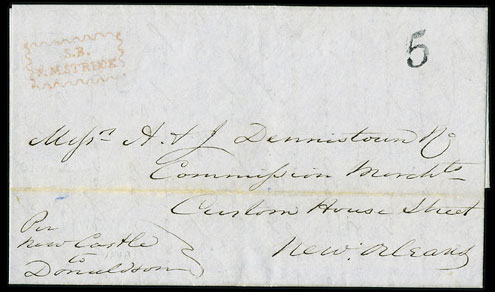 S.B.
F.M STRECK
5
Messrs A & J Dennistoun &Co
Commission Merchts
Custom House Street
New Orleans
Per
New Castle
to
Donaldson